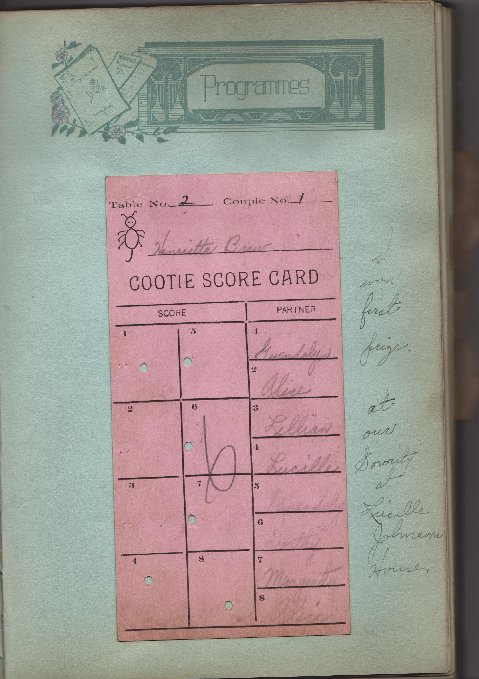 Programmes
Table No. 2 Couple No. 1
Henrietta
COOTIE SCORE CARD
SCORE PARTNER
1 5 1 Gwendolyn
2 Alice
2 6 3 Lillian
4 Lucille
3 7 5
6 Dorothy
4 8 7 Margaret
8 Alice
6
I
won
first
prize.
at
ours
Sorority
at
Lucille
Johnson
House.